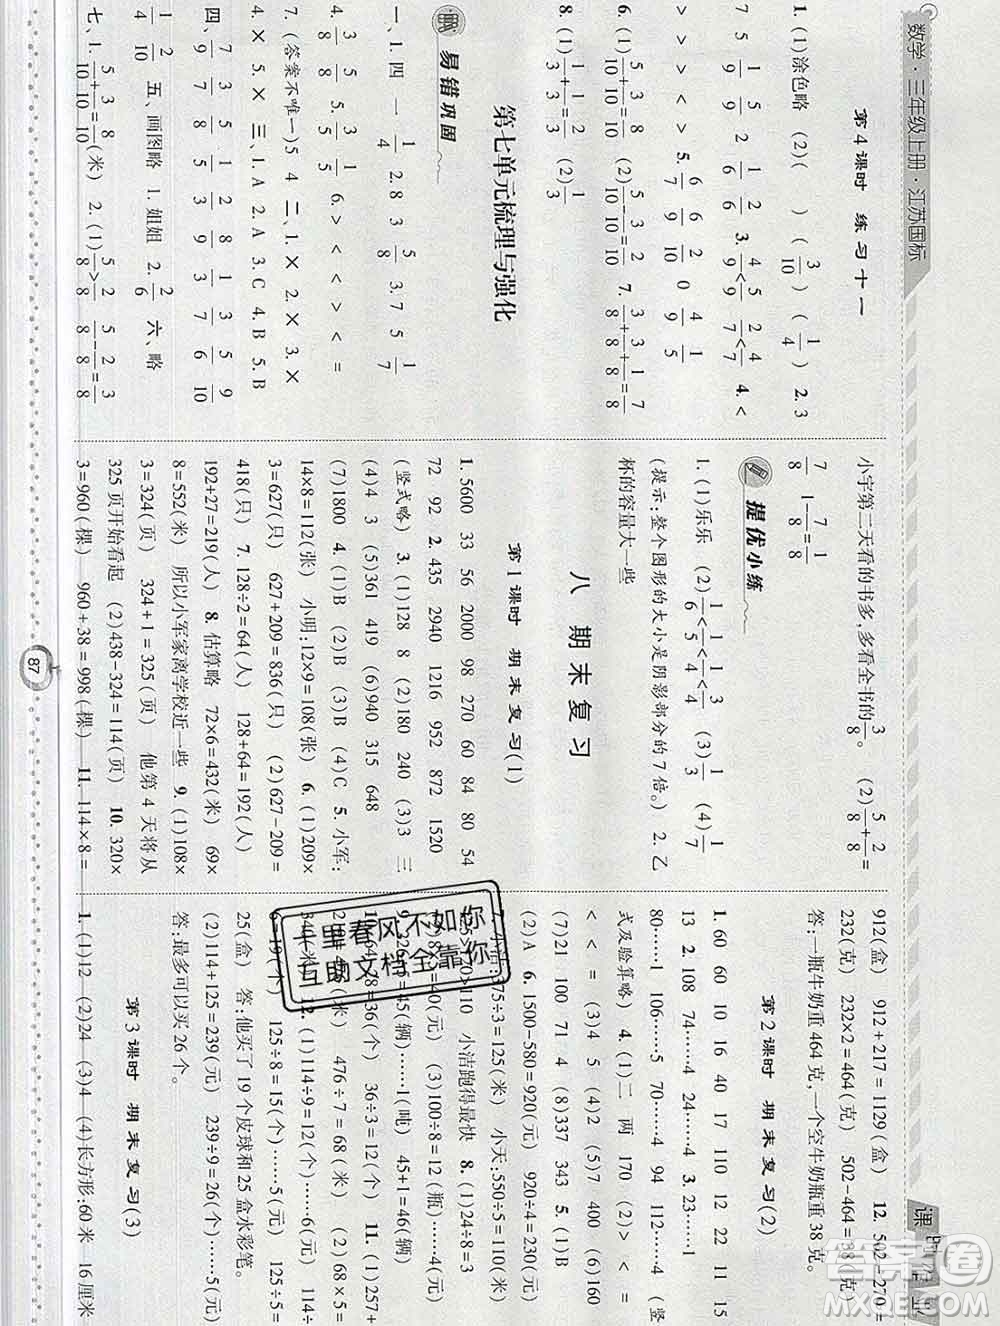 数学·三年级上册·江苏国标
课时作业
第4课时 练习十一
1. (1)涂色略 (2)( ) (3/10) (1/4) 2. 3
7 5 1/9 5/9 2 1/6 2/6 3. 4/9<5/9 2/7<4/7 4. <
> > > < > 5. 6/7 6/9 2/10 0 4/9 1/5
6. (1)5/10+3/10=8/10 (2)5/10-3/10=2/10 7. 3/8+3/8+1/8=7/8
8. (1)1/3+1/3=2/3 (2)1/3
第七单元梳理与强化
易错巩固
一、1. 四 一 1/4 2. 8 3 5/8 3. 7 5 1/7
4. 3/8 5/8 5. 3/5 1/5 6. > < < > < =
7. (答案不唯一)5 4 二、1. × 2. × 3. ×
4. × 5. × 三、1. A 2. A 3. C 4. B 5. B
四、7/9 3/7 5/8 1/5 2/3 8/9 1/3 3/7 5/6 9/10
1/4 2/10 五、画图略 1. 姐姐 2. 2/6 六、略
七、1. 5/10+3/10=8/10(米) 2. (1)5/8>2/8 5/8-2/8=3/8
小宇第二天看的书多,多看全书的3/8。 (2)5/8+2/8=
7/8 1-7/8=1/8
提优小练
1. (1)乐乐 (2)1/6<1/5<1/4<3/4 (3)1/3 (4)1/7
(提示:整个图形的大小是阴影部分的7倍。) 2. 乙
杯的容量大一些
八 期末复习
第1课时 期末复习(1)
1. 5600 33 56 2000 98 270 60 84 80 54
72 92 2. 435 2940 1216 952 872 1520
(竖式略) 3. (1)128 8 (2)180 240 (3)3 三
(4)4 3 (5)361 419 (6)940 315 648
(7)1800 4. (1)B (2)B (3)B (4)C 5. 小军:
14×8=112(张) 小明:12×9=108(张) 6. (1)209×
3=627(只) 627+209=836(只) (2)627-209=
418(只) 7. 128÷2=64(人) 128+64=192(人)
192+27=219(人) 8. 估算略 72×6=432(米) 69×
8=552(米) 所以小军家离学校近一些 9. (1)108×
3=324(页) 324+1=325(页) 他第4天将从
325页开始看起 (2)438-324=114(页) 10. 320×
3=960(棵) 960+38=998(棵) 11. 114×8=
912(盒) 912+217=1129(盒) 12. 502-270=
232(克) 232×2=464(克) 502-464=38(克)
答:一瓶牛奶重464克,一个空牛奶瓶重38克。
第2课时 期末复习(2)
1. 60 60 10 16 40 17 200 11 22 15
13 2. 108 74……4 110 12 3. 23……1
80……1 106……5 70……4 94 112……4 (竖
式及验算略) 4. (1)二 两 170 (2)< >
< < = (3)4 5 (4)2 (5)7 400 (6)160
(7)21 100 71 4 (8)337 343 5. (1)B
(2)A 6. 1500-580=920(元) 920÷4=230(元)
375÷3=125(米) 小天:550÷5=110(米)
>110 小洁跑得最快 8. (1)24÷
=40(元) (3)100÷8=12(瓶)……4(元)
=45(辆)……1(吨) 45+1=46(辆)
=36(个) 36÷3=12(个) 11. (1)257+
476÷7=68(米) (2)340÷5=
12. (1)114÷9=12(个)……6(个)
125÷8=15(个)……5(元) (2)125÷5=
25(盒) 答:他买了19个皮球和25盒水彩笔。
(2)114+125=239(元) 239÷9=26(个)……5(元)
答:最多可以买26个。
第3课时 期末复习(3)
1. (1)12 (2)24 (3)4 (4)长方形:60米 16厘米
87
千里春风不如你
互助文档全靠你
答案圈
MXQE.COM